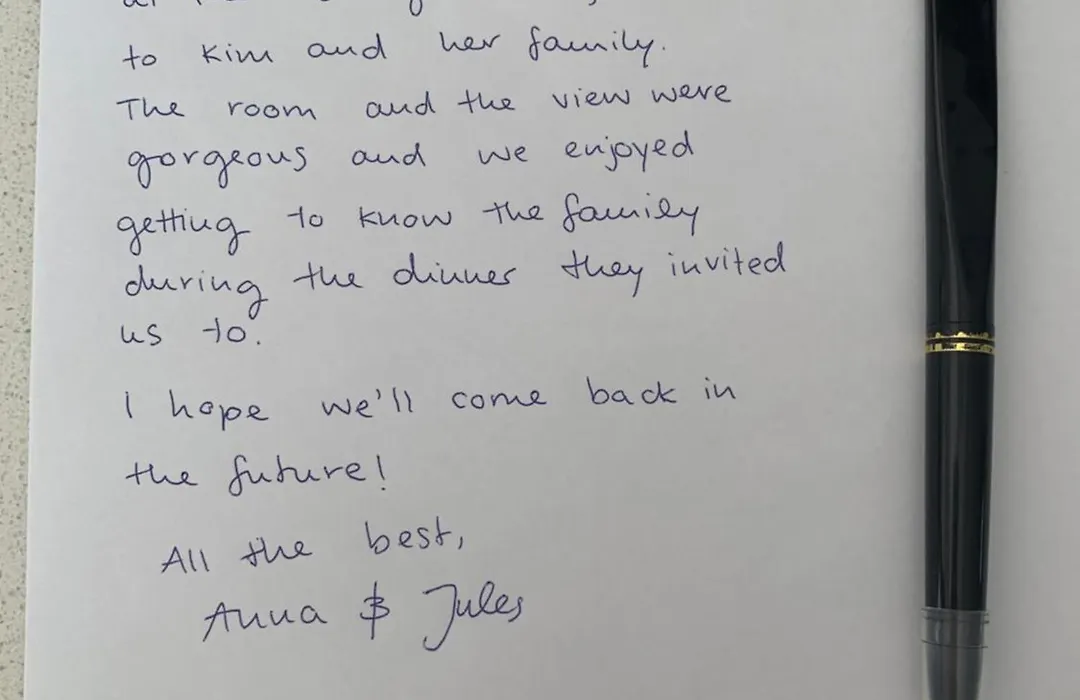 to Kim and her family.
The room and the view were
gorgeous and we enjoyed
getting to know the family
during the dinner they invited
us to.
I hope we'll come back in
the future!
All the best,
Anna & Jules